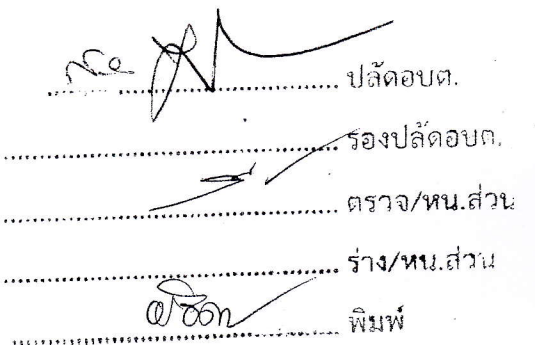 ........................ ปลัดอบต.
........................ รองปลัดอบต.
........................ ตรวจ/หน.ส่วน
........................ ร่าง/หน.ส่วน
........................ พิมพ์